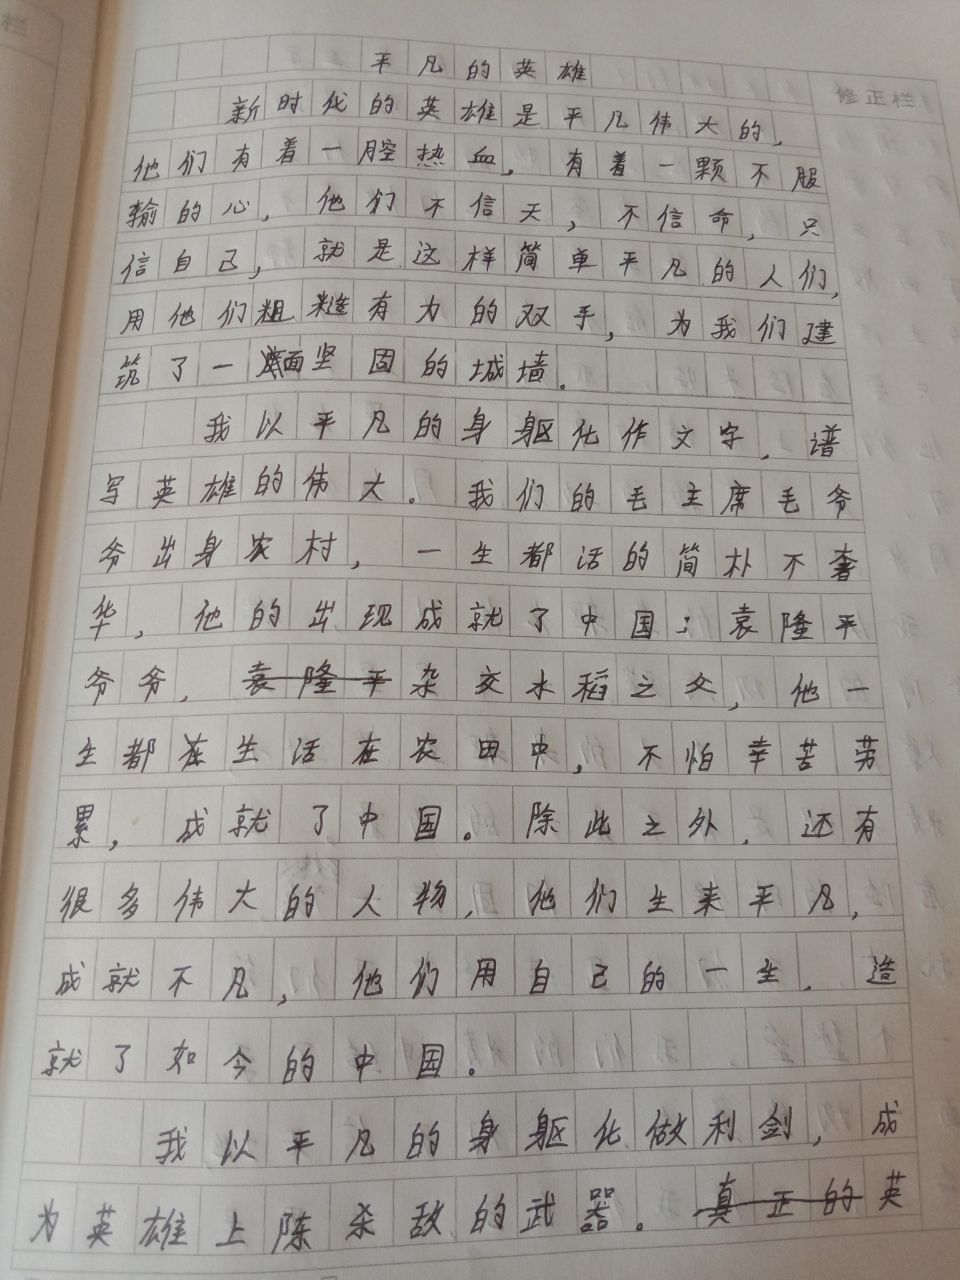 平凡的英雄
修正栏
新时代的英雄是平凡伟大的,
他们有着一腔热血,有着一颗不服
输的心,他们不信天,不信命,只
信自己,就是这样简单平凡的人们,
用他们粗糙有力的双手,为我们建
筑了一面坚固的城墙。
我以平凡的身躯化作文字,谱
写英雄的伟大。我们的毛主席毛爷
爷出身农村,一生都活的简朴不奢
华,他的出现成就了中国;袁隆平
爷爷,袁隆平杂交水稻之父,他一
生都在生活在农田中,不怕辛苦劳
累,成就了中国。除此之外,还有
很多伟大的人物,他们生来平凡,
成就不凡,他们用自己的一生,造
就了如今的中国。
我以平凡的身躯化做利剑,成
为英雄上陈杀敌的武器。真正的英